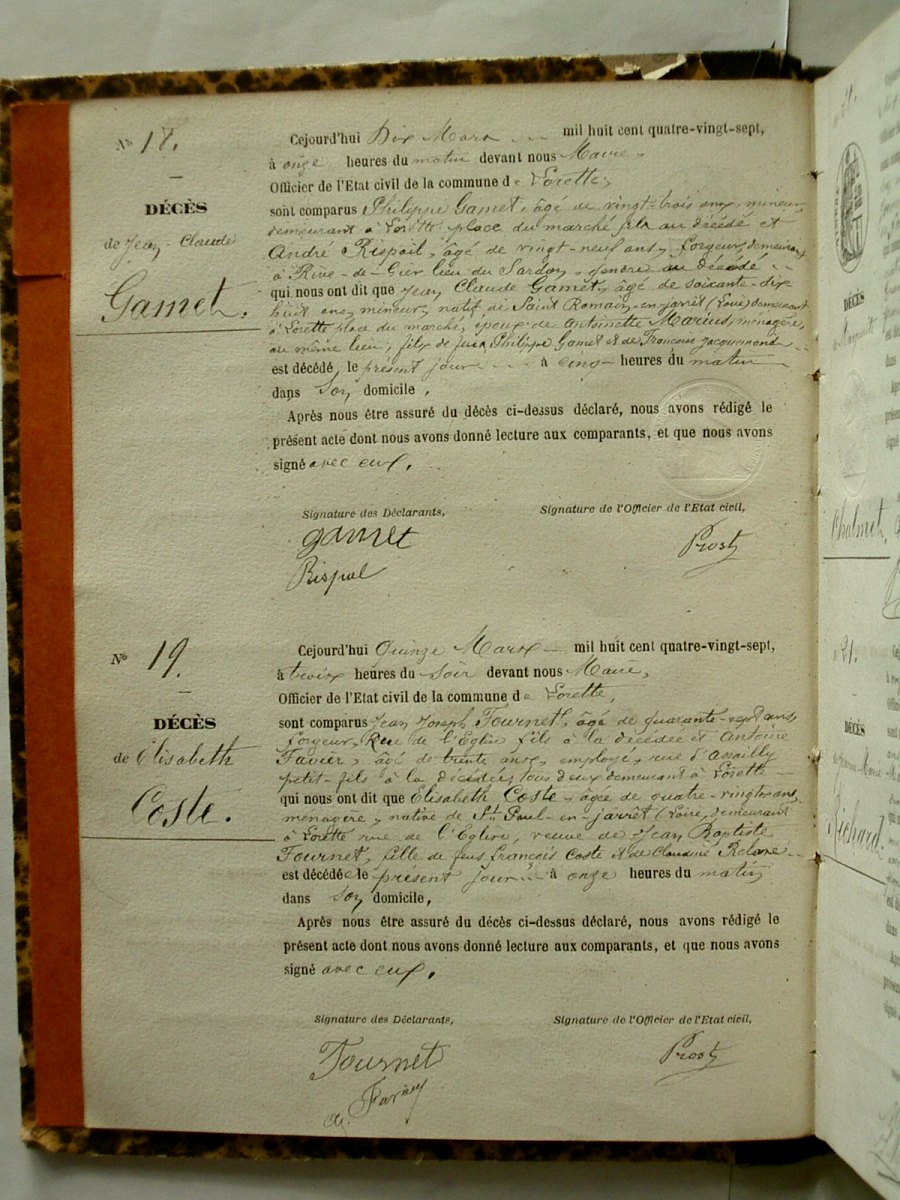 No 18.
DÉCÈS
de Jean-Claude
Gamet.
Cejourd'hui Dix Mars mil huit cent quatre-vingt-sept,
à onze heures du matin devant nous Maire,
Officier de l'Etat civil de la commune de Lorette,
sont comparus Philippe Gamet, âgé de vingt-trois ans, mineur,
demeurant à Lorette place du marché, fils au décédé et
André Rispail, âgé de vingt-neuf ans, forgeur, demeurant
à Rive-de-Gier lieu du Sardon, gendre au décédé
qui nous ont dit que Jean Claude Gamet, âgé de soixante-dix
huit ans, mineur, natif de Saint Romain-en-jarret (Loire) demeurant
à Lorette place du marché, époux de Antoinette Marius, ménagère,
au même lieu, fils de feus Philippe Gamet et de Francoise Jacquemond
est décédé, le présent jour à cinq heures du matin
dans son domicile,
Après nous être assuré du décès ci-dessus déclaré, nous avons rédigé le
présent acte dont nous avons donné lecture aux comparants, et que nous avons
signé avec eux.
Signature des Déclarants,
Signature de l'Officier de l'Etat civil,
gamet
Prost
Rispal
No 19.
DÉCÈS
de Elisabeth
Coste.
Cejourd'hui Quinze Mars mil huit cent quatre-vingt-sept,
à trois heures du soir devant nous Maire,
Officier de l'Etat civil de la commune de Lorette,
sont comparus Jean Joseph Tournet, âgé de quarante-sept ans,
forgeur, Rue de l'Eglise fils à la décédée et Antoine
Favier, âgé de trente ans, employé, rue d'Assailly
petit-fils à la décédée, tous deux demeurant à Lorette
qui nous ont dit que Elisabeth Coste, âgée de quatre-vingts ans,
menagere, native de St Paul-en-jarret (Loire, demeurant
à Lorette rue de l'Eglise, veuve de Jean Baptiste
Tournet, fille de feus François Coste et de Claudine
est décédée le présent jour à onze heures du matin
dans son domicile,
Après nous être assuré du décès ci-dessus déclaré, nous avons rédigé le
présent acte dont nous avons donné lecture aux comparants, et que nous avons
signé avec eux.
Signature des Déclarants,
Signature de l'Officier de l'Etat civil,
Tournet
Prost
DÉCÈS
Chalmet
21.
DÉCÈS
Richard.